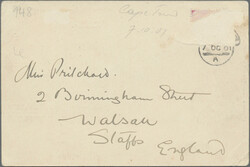 948
Cape Town
7.10.01
7 OC 01
A
Miss Pritchard.
2 Birmingham Street
Walsall
Staffs
England